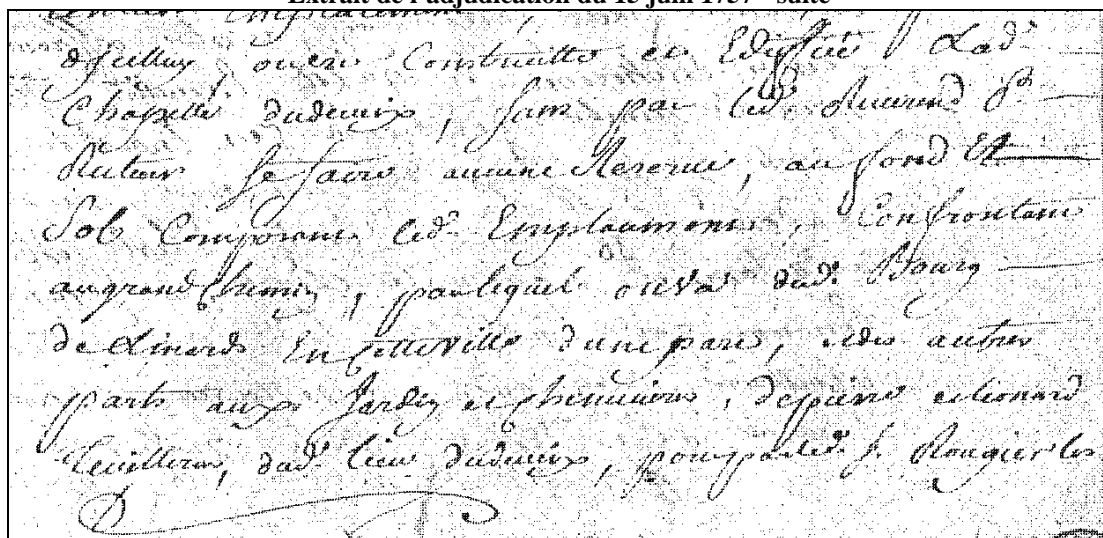 Extrait de l'adjudication du 15 juin 1757 - suite
emplacement
d'icelluy ou est Construitte et Ediffiée Lad.
Chapelle dudeveix, sans par led. Reverend P.
se faire aucune Reserve, au fond Et
Sol Composant led. Emplacement, Confrontant
au grand Chemin, par lequel on va dud. Bourg
de Linards En cette ville d'une part, et des autres
parts aux Jardin et Cheneviere, de pierre et lionard
dud. lieu dudeveix, pour par led. S. Rougier les